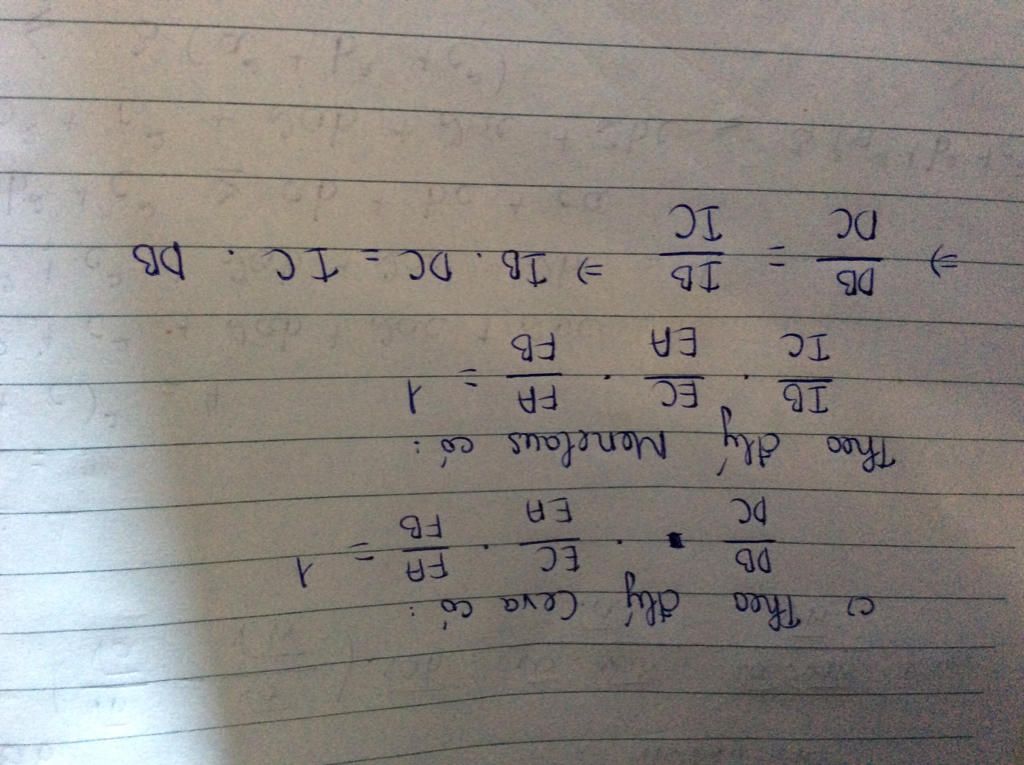 c) Theo đlý Ceva có:
DB/DC . EC/EA . FA/FB = 1
Theo đlý Menelaus có:
IB/IC . EC/EA . FA/FB = 1
⇒ DB/DC = IB/IC ⇒ IB . DC = IC . DB